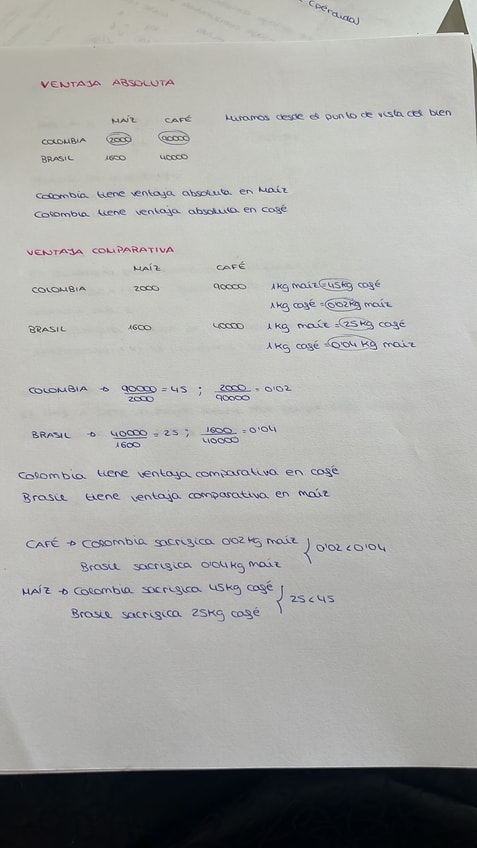 (perdida)
VENTAJA ABSOLUTA
MAÍZ CAFÉ Miramos desde el punto de vista del bien
COLOMBIA 2000 90000
BRASIL 1600 40000
Colombia tiene ventaja absoluta en Maíz
Colombia tiene ventaja absoluta en café
VENTAJA COMPARATIVA
MAÍZ CAFÉ
COLOMBIA 2000 90000 1kg maíz = 45kg café
1kg café = 0'02kg maíz
BRASIL 1600 40000 1kg maíz = 25kg café
1kg café = 0'04 kg maíz
COLOMBIA → 90000/2000 = 45 ; 2000/90000 = 0'02
BRASIL → 40000/1600 = 25 ; 1600/40000 = 0'04
Colombia tiene ventaja comparativa en café
Brasil tiene ventaja comparativa en maíz
CAFÉ → Colombia sacrifica 0'02kg maíz } 0'02 < 0'04
Brasil sacrifica 0'04kg maíz
MAÍZ → Colombia sacrifica 45kg café } 25 < 45
Brasil sacrifica 25kg café